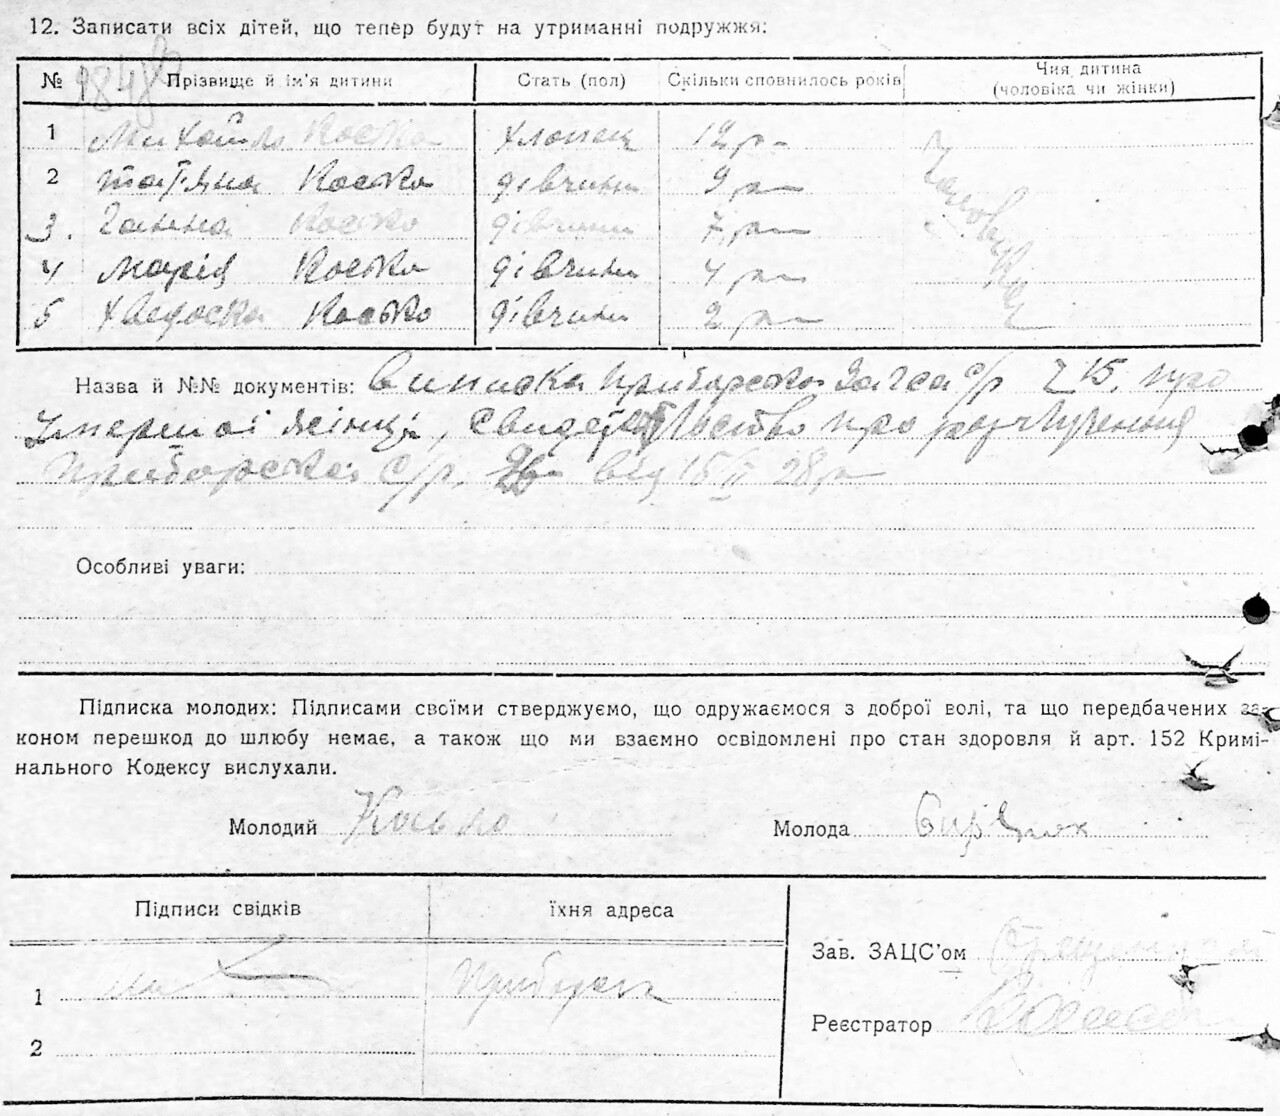 12. Записати всіх дітей, що тепер будут на утриманні подружжя:
№ Прізвище й ім'я дитини Стать (пол) Скільки сповнилось років Чия дитина (чоловіка чи жінки)
1 Михайло Косько хлопец 12 р.
2 Татьяна Косько дівчина 9 р.
3. Ганна Косько дівчина 7 р.
4 Марія Косько дівчина 4 р.
5 Хведоска Косько дівчина 2 р.
Назва й №№ документів: Виписка Приборська Загса с/р 15, про
умершої жінці, про разлучення
Приборська с/р. від 15 28 р.
Особливі уваги:
Підписка молодих: Підписами своїми стверджуємо, що одружаємося з доброї волі, та що передбачених за-
коном перешкод до шлюбу немає, а також що ми взаємно освідомлені про стан здоровля й арт. 152 Кримі-
нального Кодексу вислухали.
Молодий Косько Молода
Підписи свідків Їхня адреса
Зав. ЗАЦС'ом
1
Реєстратор
2